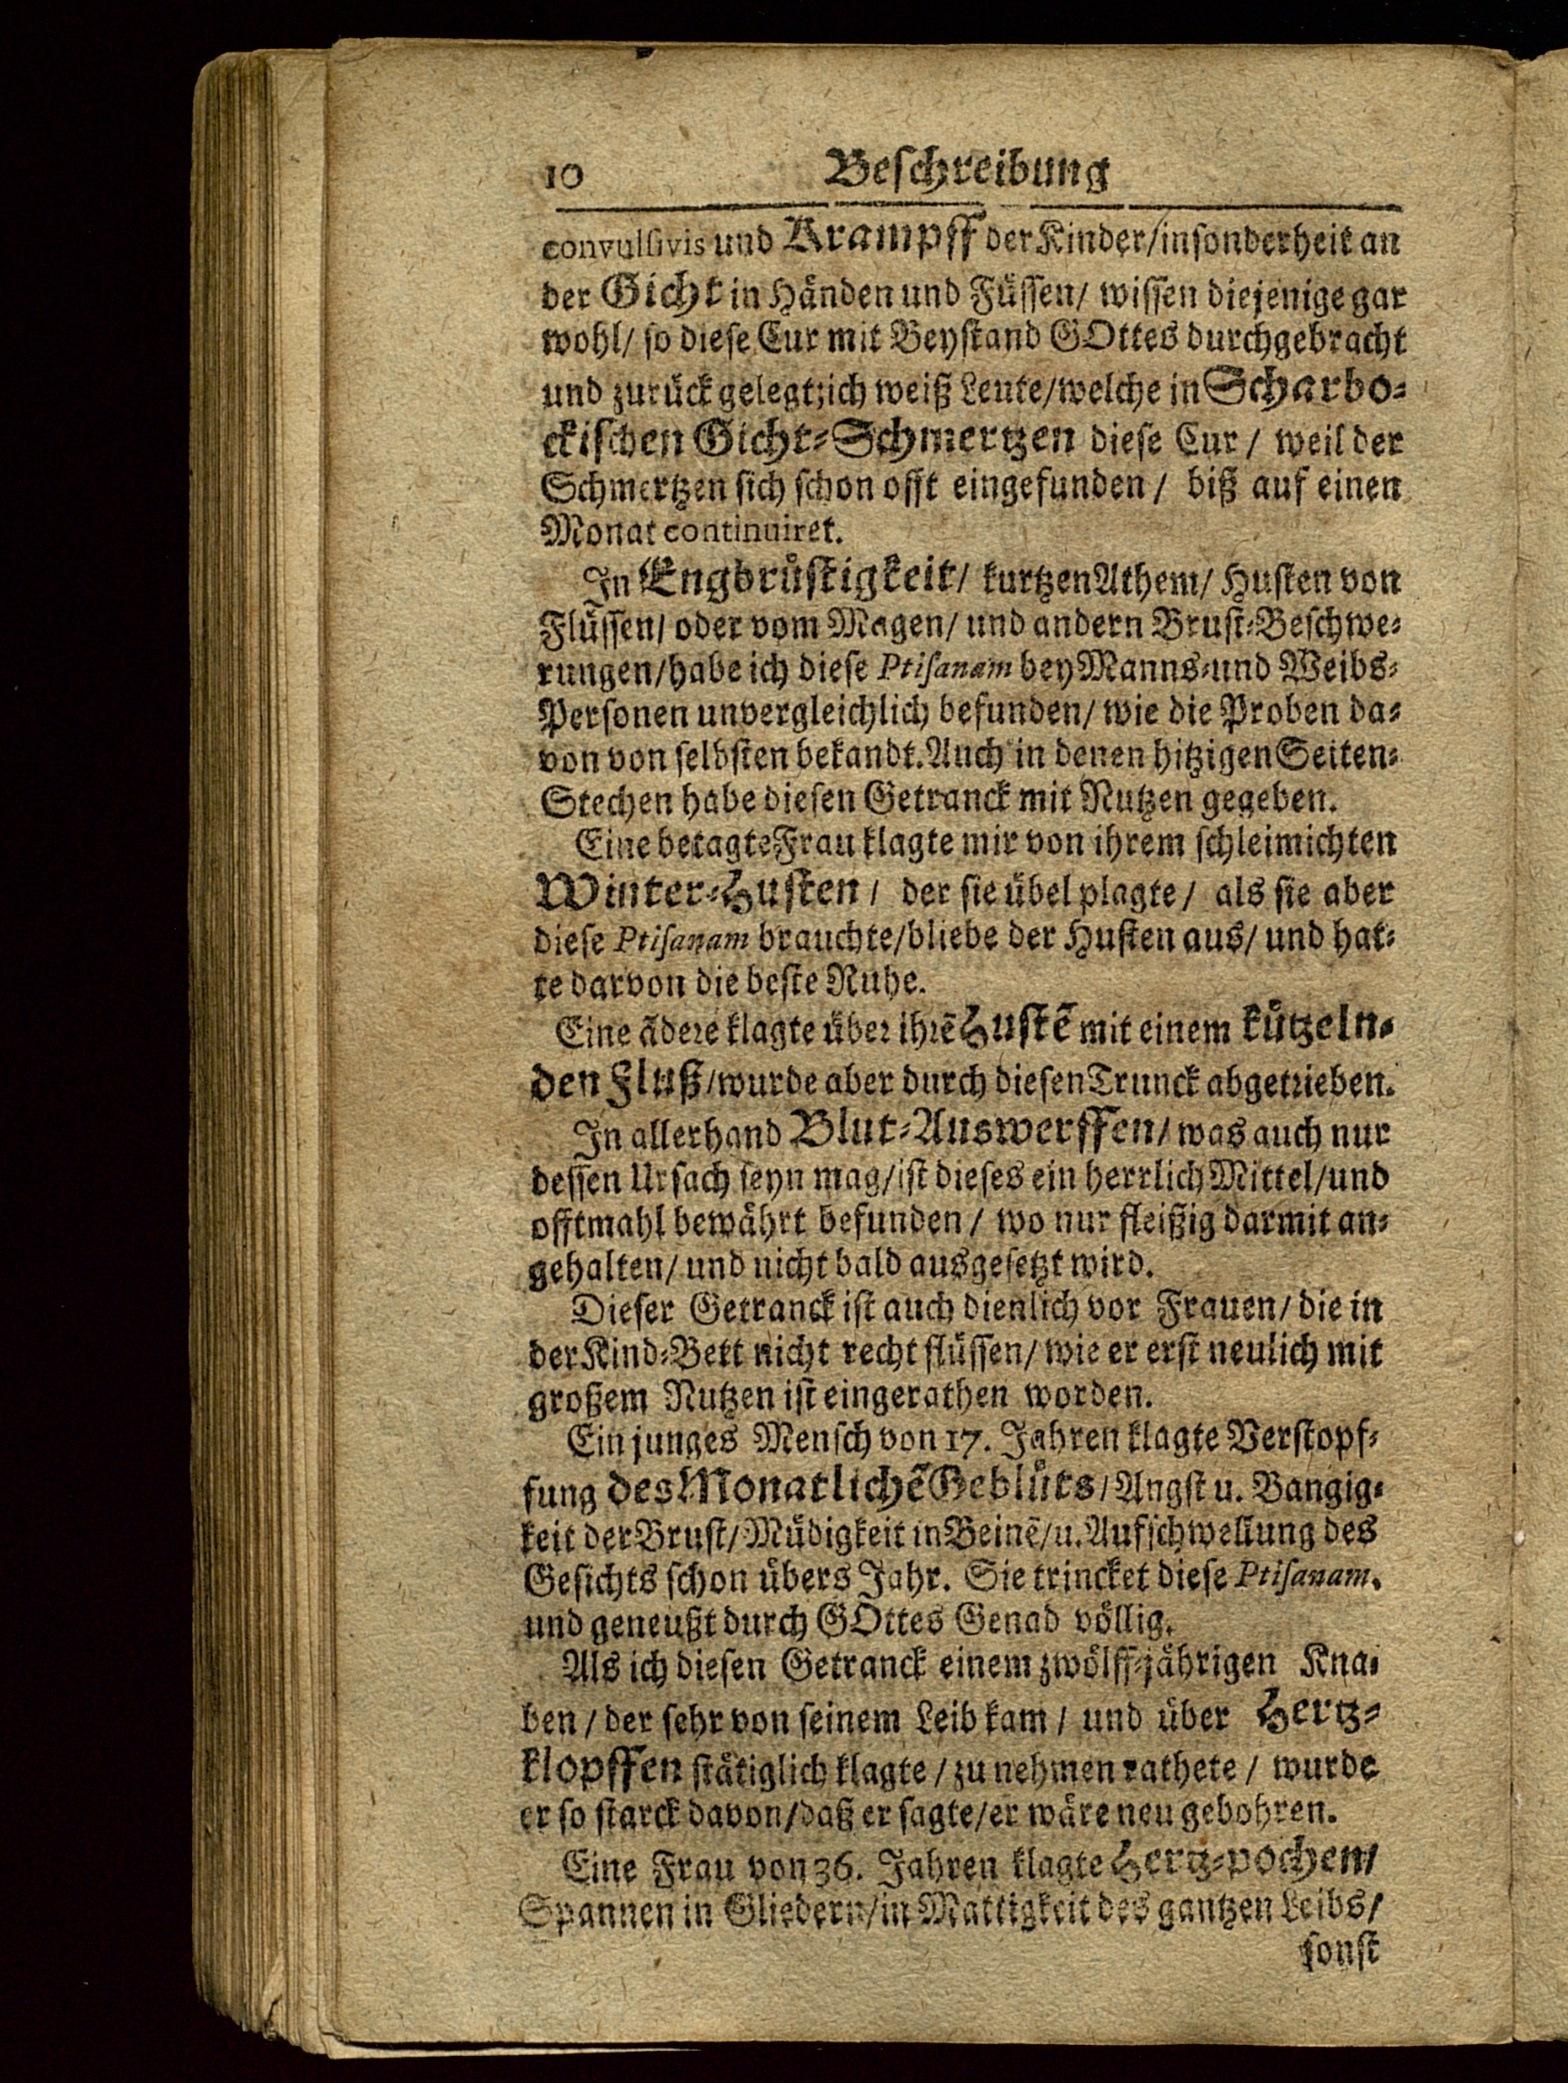 10 Beschreibung
convulsivis und Krampff der Kinder/insonderheit an
der Gicht in Händen und Füssen/ wissen diejenige gar
wohl/ so diese Cur mit Beystand GOttes durchgebracht
und zurück gelegt; ich weiß Leute/welche in Scharbo-
ckischen Gicht-Schmertzen diese Cur/ weil der
Schmertzen sich schon offt eingefunden/ biß auf einen
Monat continuiret.
In Engbrüstigkeit/ kurtzen Athem/ Husten von
Flüssen/ oder vom Magen/ und andern Brust-Beschwe-
rungen/habe ich diese Ptisanam bey Manns-und Weibs-
Personen unvergleichlich befunden/ wie die Proben da-
von von selbsten bekandt. Auch in denen hitzigen Seiten-
Stechen habe diesen Getranck mit Nutzen gegeben.
Eine betagte Frau klagte mir von ihrem schleimichten
Winter-Husten/ der sie übel plagte/ als sie aber
diese Ptisanam brauchte/bliebe der Husten aus/ und hat-
te darvon die beste Ruhe.
Eine ãdere klagte über ihrẽ Hustẽ mit einem kützeln-
den Fluß/wurde aber durch diesen Trunck abgetrieben.
In allerhand Blut-Auswerffen/ was auch nur
dessen Ursach seyn mag/ist dieses ein herrlich Mittel/und
offtmahl bewährt befunden/ wo nur fleißig darmit an-
gehalten/ und nicht bald ausgesetzt wird.
Dieser Getranck ist auch dienlich vor Frauen/ die in
der Kind-Bett nicht recht flüssen/ wie er erst neulich mit
großem Nutzen ist eingerathen worden.
Ein junges Mensch von 17. Jahren klagte Verstopf-
fung des Monatlichẽ Geblüts/Angst u. Bangig-
keit der Brust/Müdigkeit in Beinẽ/u. Aufschwellung des
Gesichts schon übers Jahr. Sie trincket diese Ptisanam,
und geneußt durch GOttes Genad völlig.
Als ich diesen Getranck einem zwölff-jährigen Kna-
ben/ der sehr von seinem Leib kam/ und über Hertz-
klopffen stätiglich klagte/ zu nehmen rathete/ wurde
er so starck davon/daß er sagte/er wäre neu gebohren.
Eine Frau von 36. Jahren klagte Hertz-pochen/
Spannen in Gliedern/in Mattigkeit des gantzen Leibs/
sonst